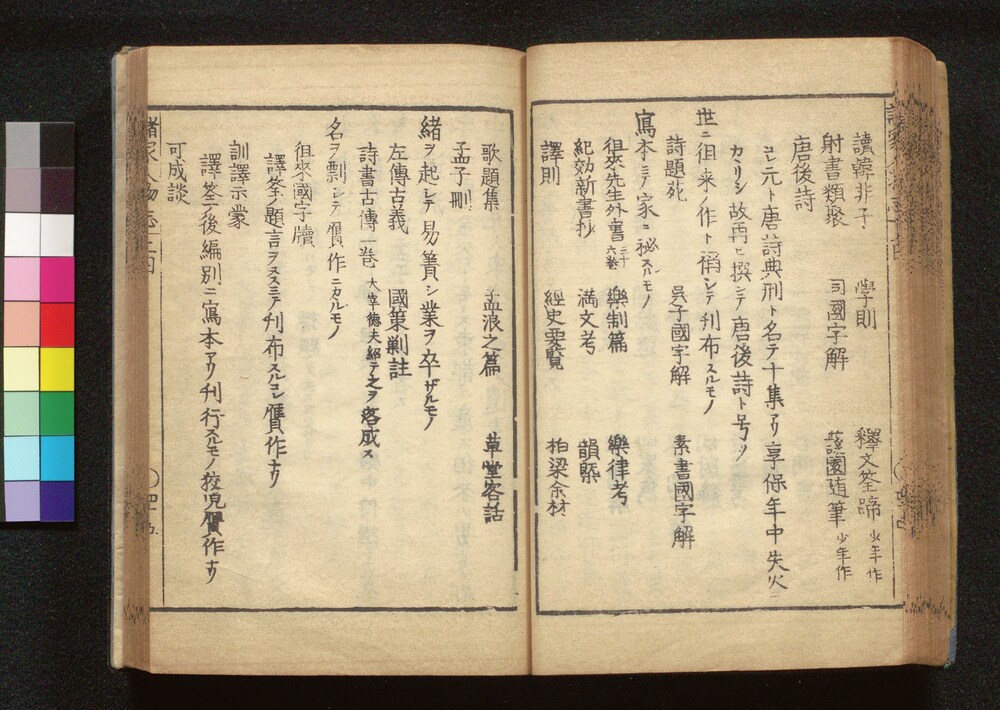 讀韓非子 學則 釋文筌蹄 少年作
射書類聚 司馬國字解 蘐園随筆 少年作
唐後詩
コレ元ト唐詩典刑ト名テ十集アリ享保年中失火ニ
カヽリシ故再ヒ撰シテ唐後詩ト号ソ
世ニ徂来ノ作ト稱シテ刋布スルモノ
詩題苑 呉子國字解 素書國字解
寫本ニテ家ニ秘スルモノ
徂來先生外書 三十六巻 樂制篇 樂律考
紀効新書抄 満文考 韻槩
譯則 經史要覧 柏梁余材
歌題集 孟浪之篇 草堂客話
孟子刪
緒ヲ起シテ易簀シ業ヲ卒ザルモノ
左傳古義 國策剿註
詩書古傳一巻 大宰德夫紹テ之ヲ落成ス
名ヲ剽シテ贋作ニカルモノ
徂來國字牘
譯筌ノ題言ヲヌスミテ刋布スルコレ贋作ナリ
訓譯示蒙
譯筌後編別ニ寫本アリ刋行スルモノ狡児贋作ナリ
可成談
諸家人物志